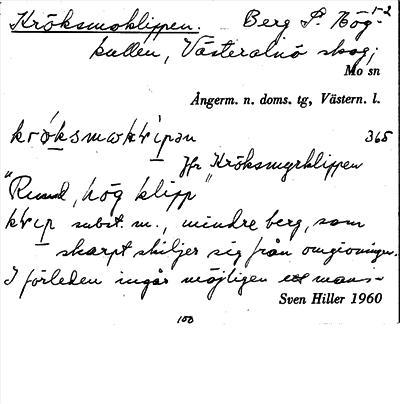 Kröksmoklippen. Berg S. Hög-1-2
kullen, Västeralnö skog;
Mo sn
Ångerm. n. doms. tg, Västern. l.
365
Jfr Kröksmyrklippen
"Rund, hög klipp"
subst. m., mindre berg, som
skarpt skiljer sig från omgivningen.
I förleden ingår möjligen ett mans-
Sven Hiller 1960
100